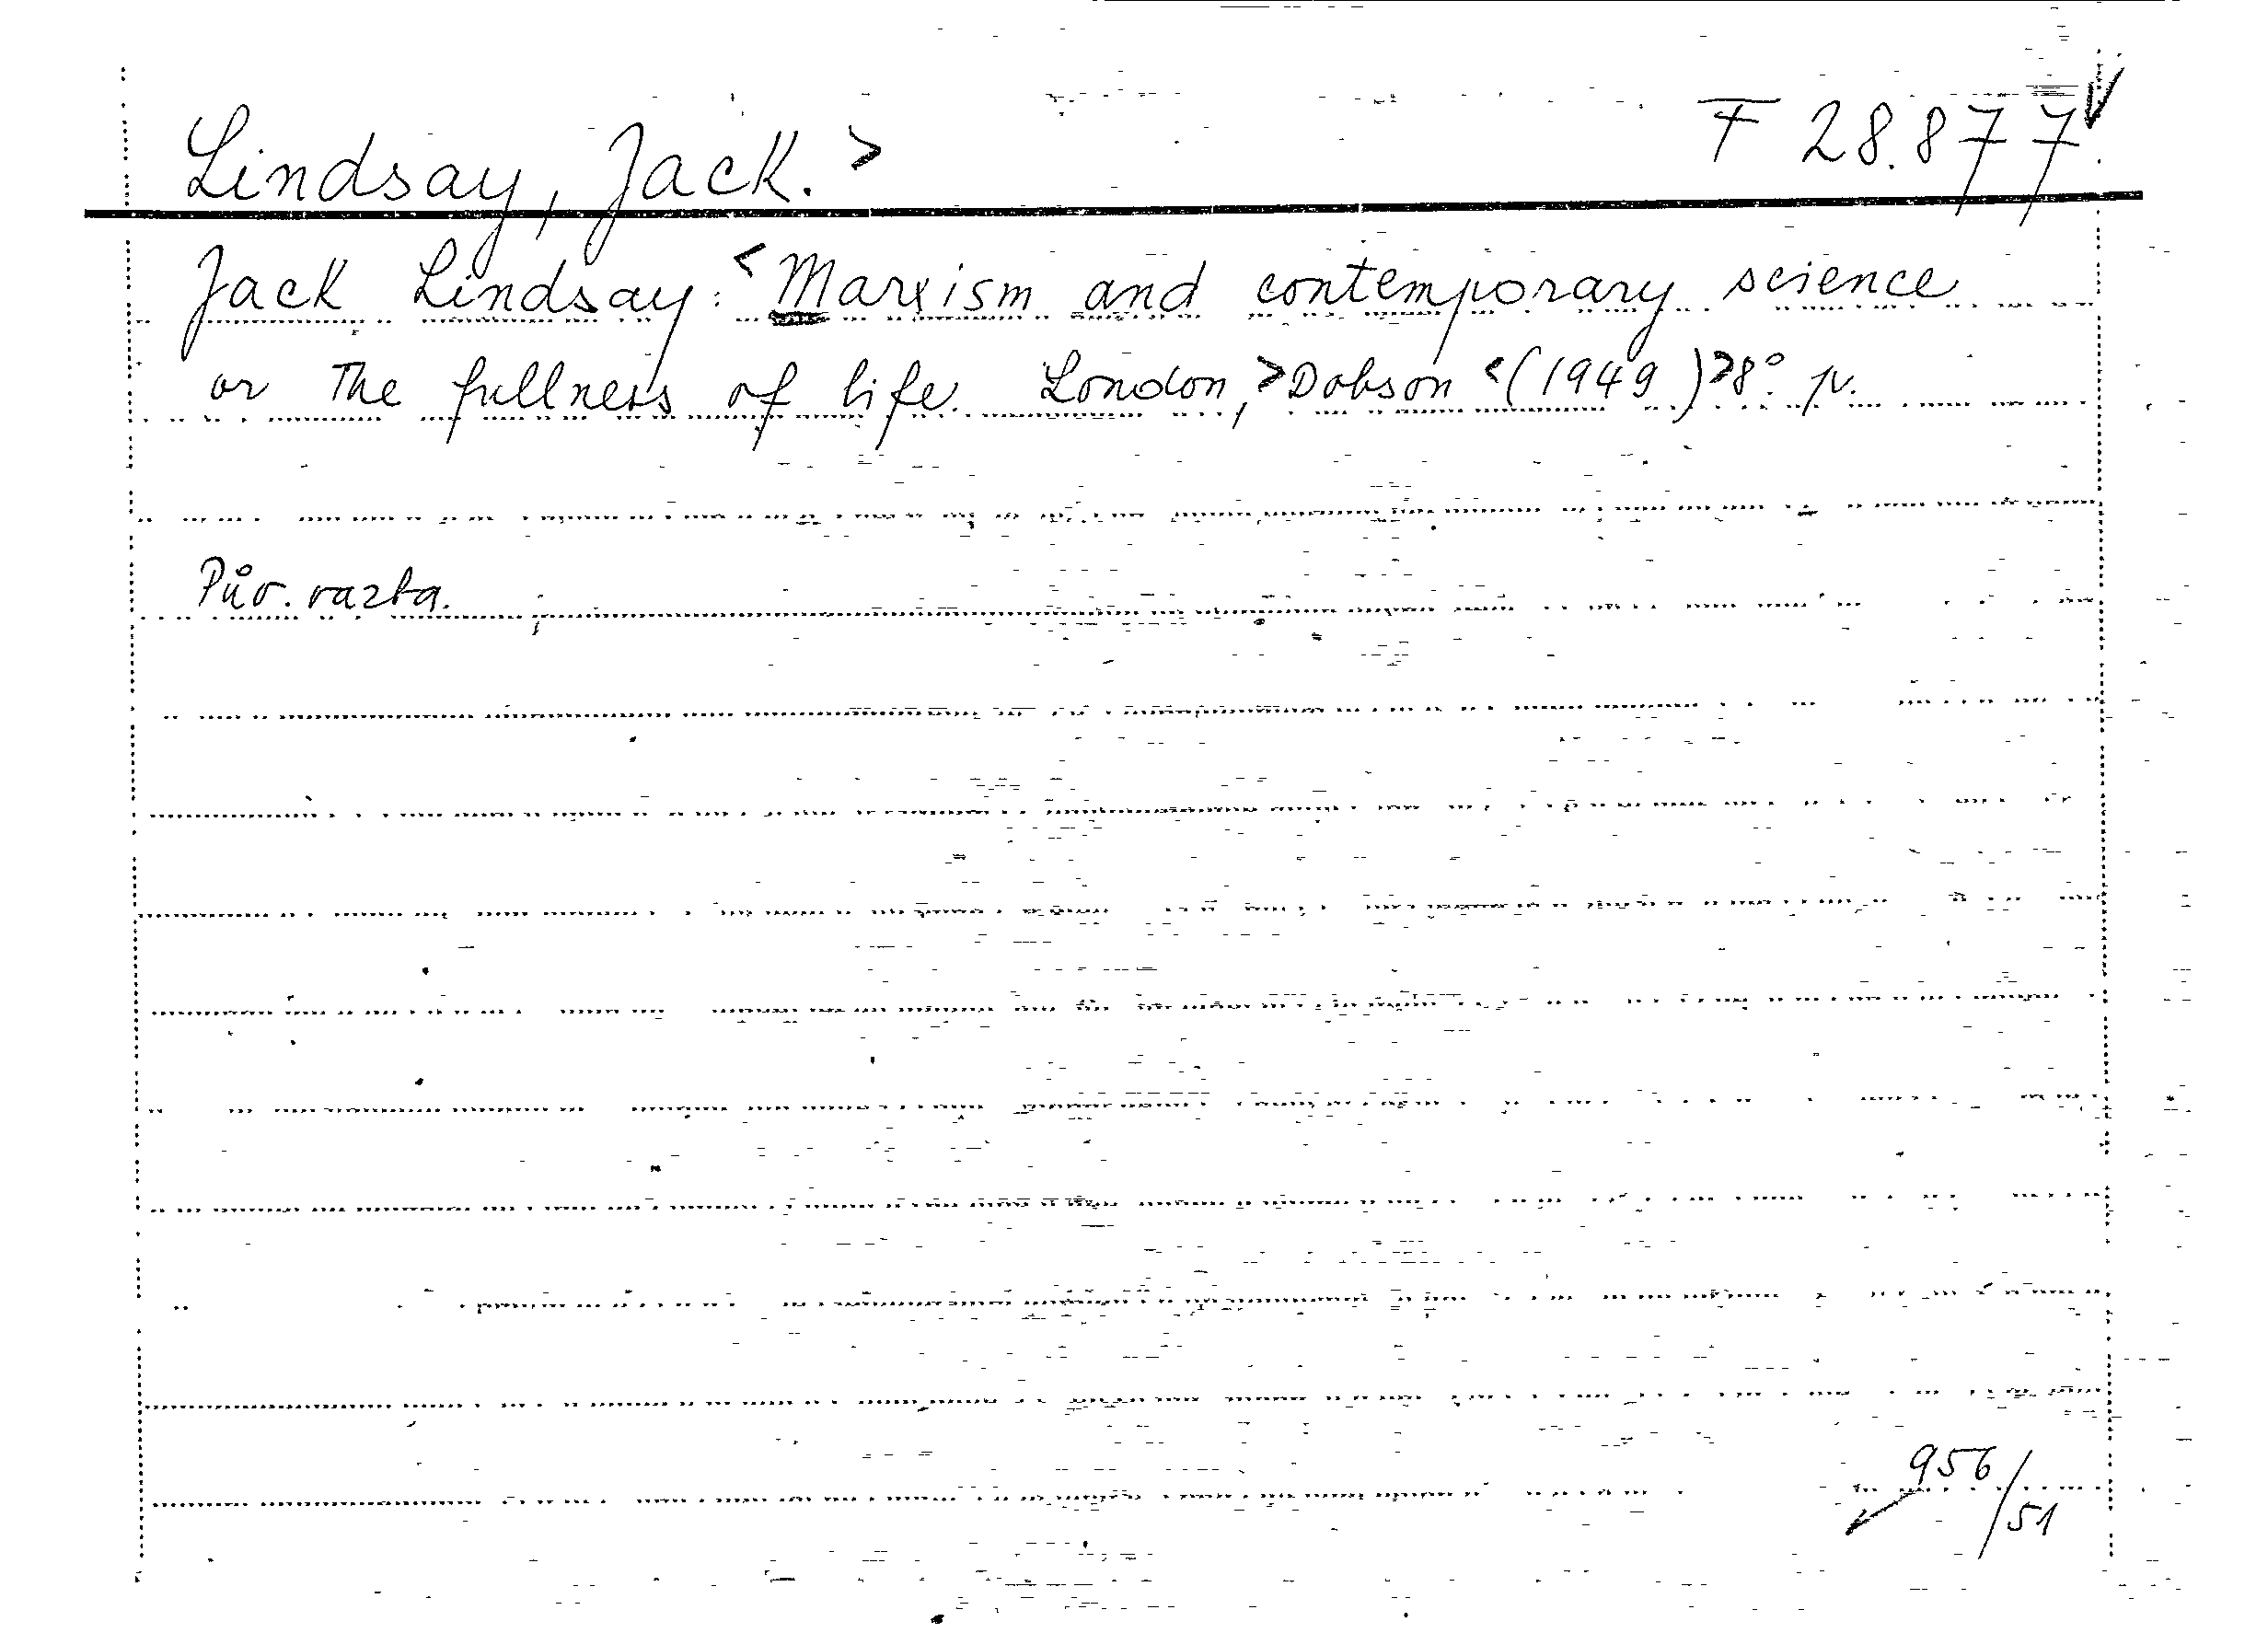 Lindsay, Jack. > F 28.877
Jack Lindsay: <Marxism and contemporary science
or The fullness of life. London, >Dobson <(1949) >8° pv.
Pův. vazba.
956/51